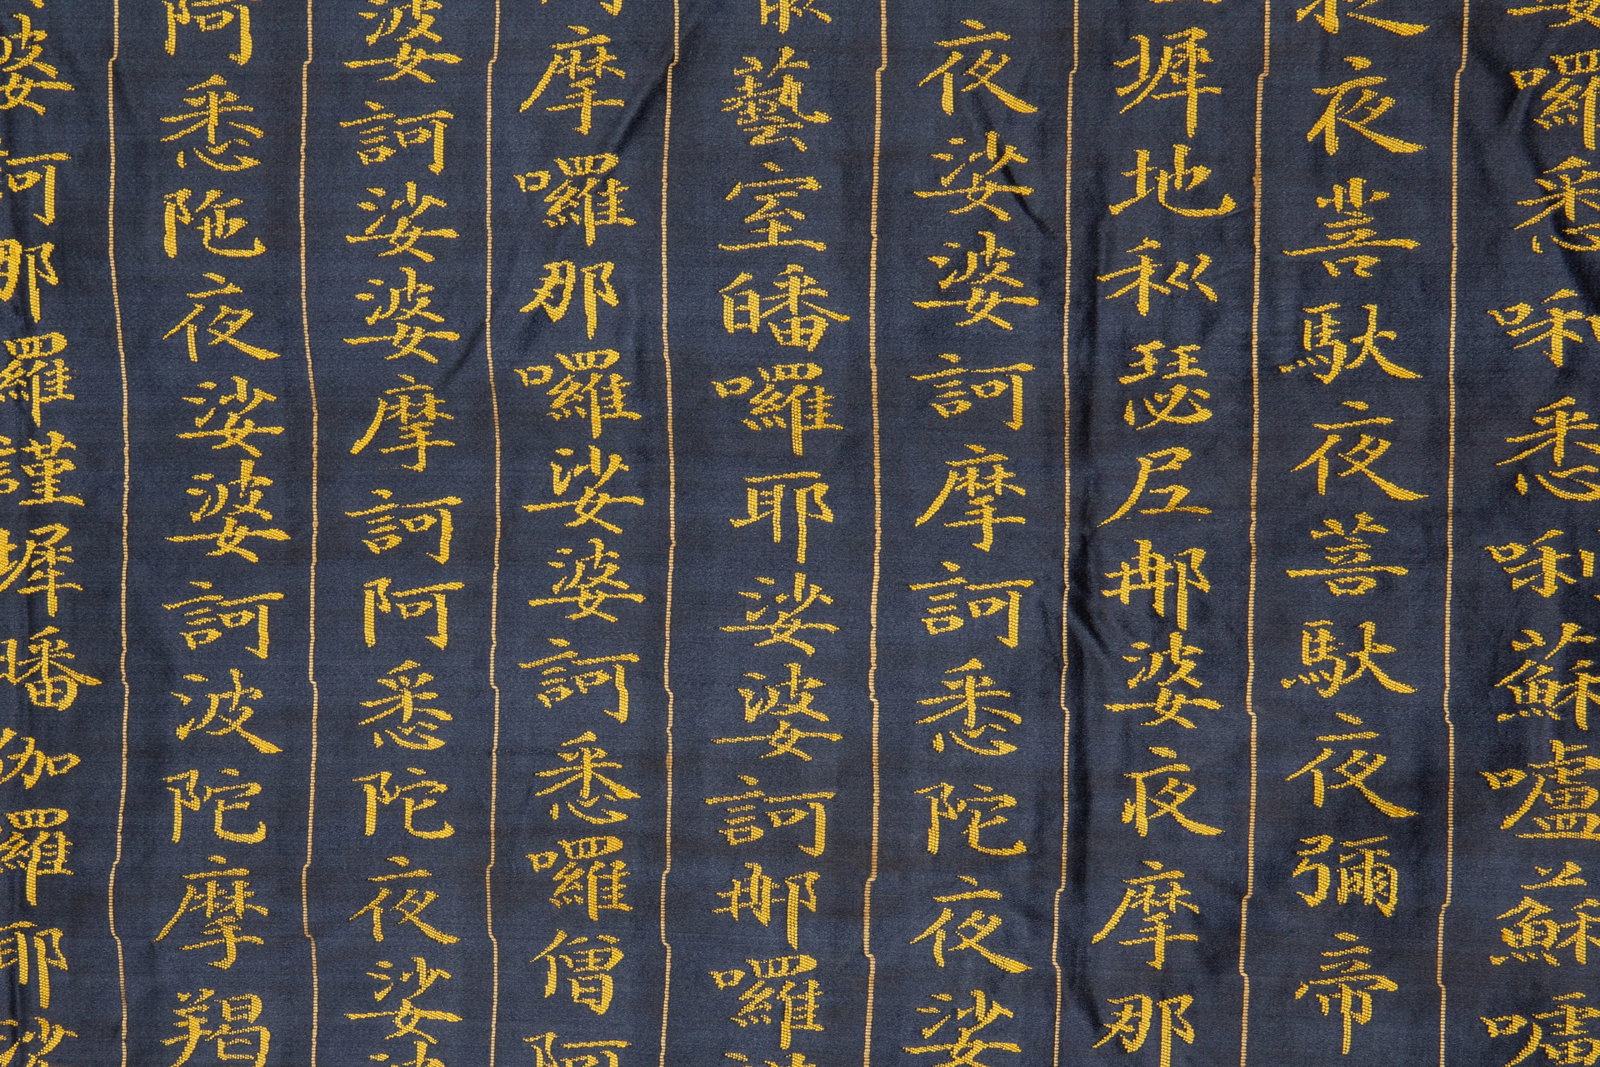 囉悉唎悉唎蘇嚧蘇嚧
夜菩馱夜菩馱夜彌帝
墀地利瑟尼那婆夜摩那
夜娑婆訶摩訶悉陀夜娑
藝室皤囉耶娑婆訶那囉
摩囉那囉娑婆訶悉囉僧阿
婆訶娑婆摩訶阿悉陀夜娑
阿悉陁夜娑婆訶波陀摩羯
婆訶那囉謹墀皤伽囉耶娑